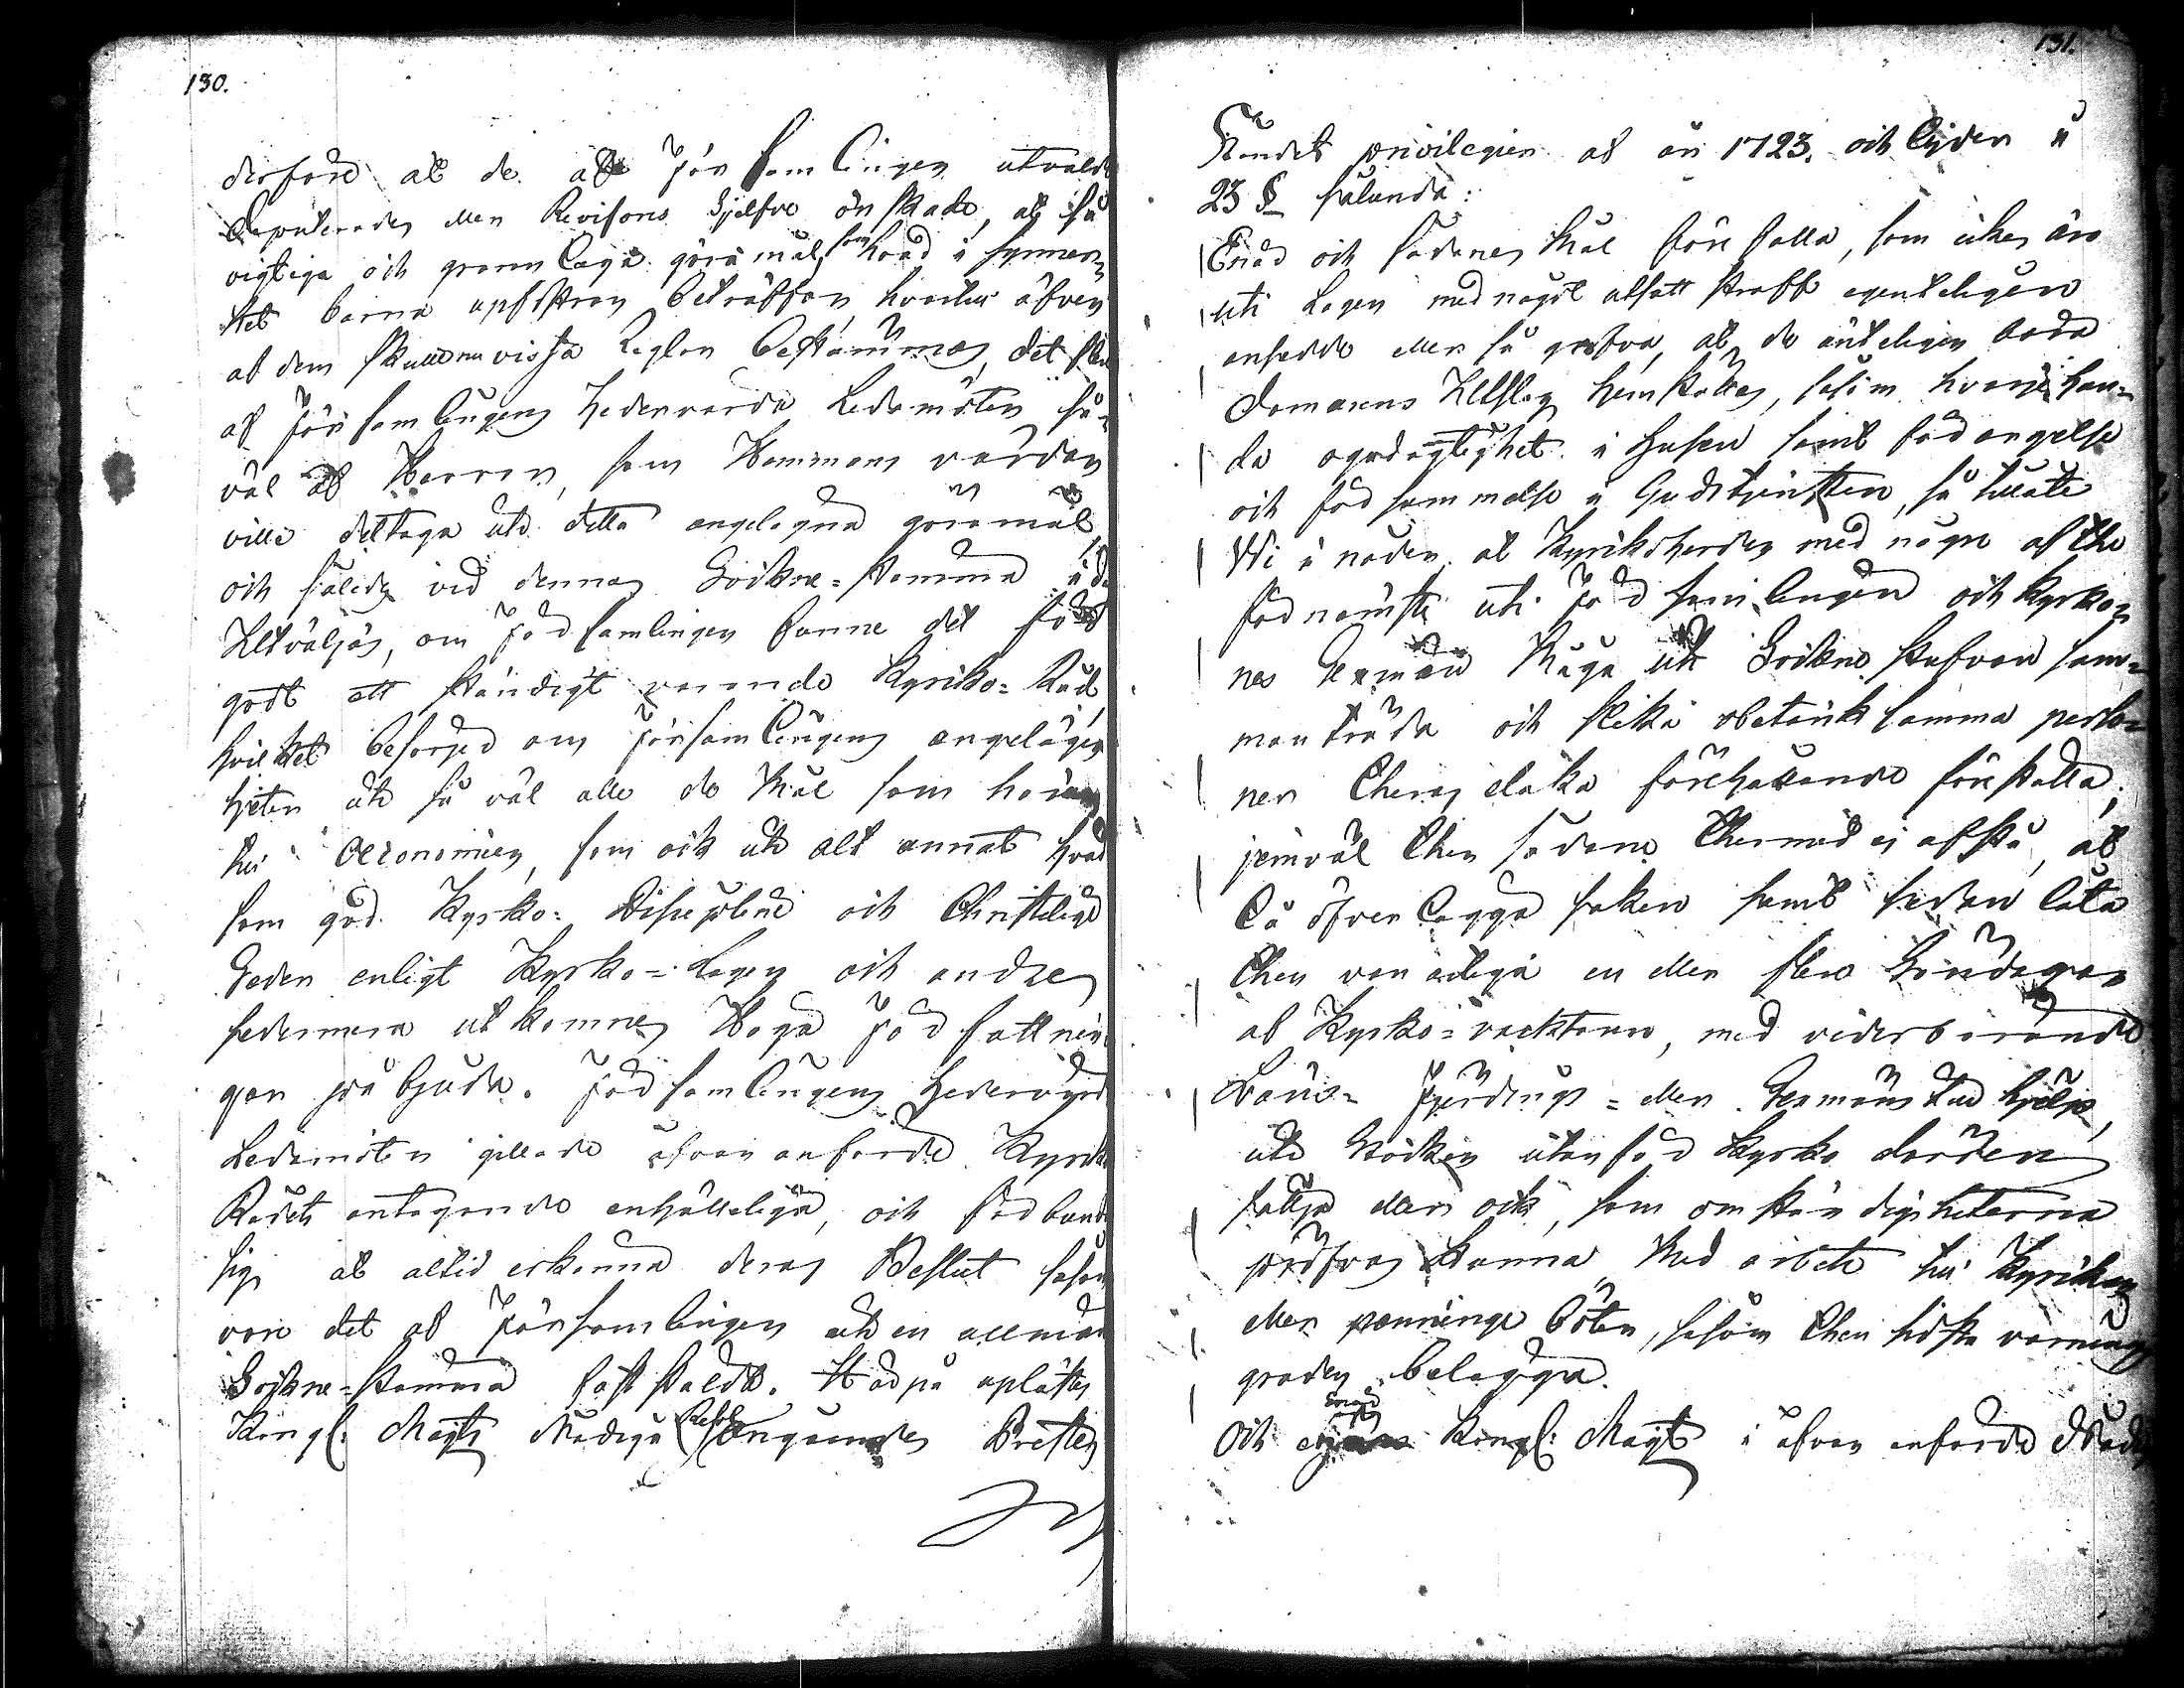 130.
derföre at de af Församlingen utvalde
Deputerades eller Revisorns Sjelfve önskade, at så
vigtiga och grannlaga göromål, som hvad i synner-
het barna upfostran beträffar, hvartil äfven
af dem skulle nu vissa Reglor bestämmas, det flere
af Församlingens Hedervärda Ledamöter så-
väl af Herrar, som Hemmans
ville deltaga uti detta angelägna göromål
och således vid denna Sockne-stämma
Utväljas, om Församlingen funne det för
godt ett ständigt varande Kyrko-Råd,
hvilket besörjer om Församlingens angelägen
heter uti så väl alla de mål som höra
til Oeconomien, som ock uti alt annat hvad
som god Kyrko-Disciplin och Christelige
Seder enligt Kyrko-Lagen och andre
sedermera utkomne Höga Författnin
gar påbjuda. Församlingens Hedervärde
Ledamöter gillade ofvan anförde Kyrko
Rådets antagande enhälleligen, och förbunde
sig at altid erkänna deras Beslut såsom
vore det af Församlingen uti en allmän
Sockne-stämma fastställdt. Härpå uplästes
Kongl: Maijts Nådiga Resol: angående Preste
131.
Ståndets privilegier af år 1723. och lyder
23 § sålunda:
Enär och sådane Mål förefalla, som icke äro
uti Lagen med något utsatt straff egenteligen
ansedde eller så grofva, at de änteligen böra
Domarens Utslag hemställas, såsom hvarje han-
da ogudagtighet i Husen samt förargelse
och försummelse i Gudstjensten, så tillåte
Wi i nåder, at Kyrkoherden med någre af the
förnämste uti Församlingen och Kyrko-
nes Sexmän måga uti Sockne stufvan sam-
manträda och slika obetänksamma perso-
ner theras elaka förehafvande föreställa,
jemväl then sådane thermed ej afstå, at
tå öfverlägga saken samt sedan låta
then vanartiga en eller flere Söndagar
af Kyrko-väcktaren, med vederbörande
Läns- Fjerdings- eller Sexmäns hjelp,
uti Stocken utanför Kyrko dörren
sättja eller ock, som omständigheterna
pröfvas kunna med arbete til Kyrkan
eller penninge böter, såsom then sidste varnings
graden belägga.
Och Kongl: Maijt i ofvan anförde Nåd